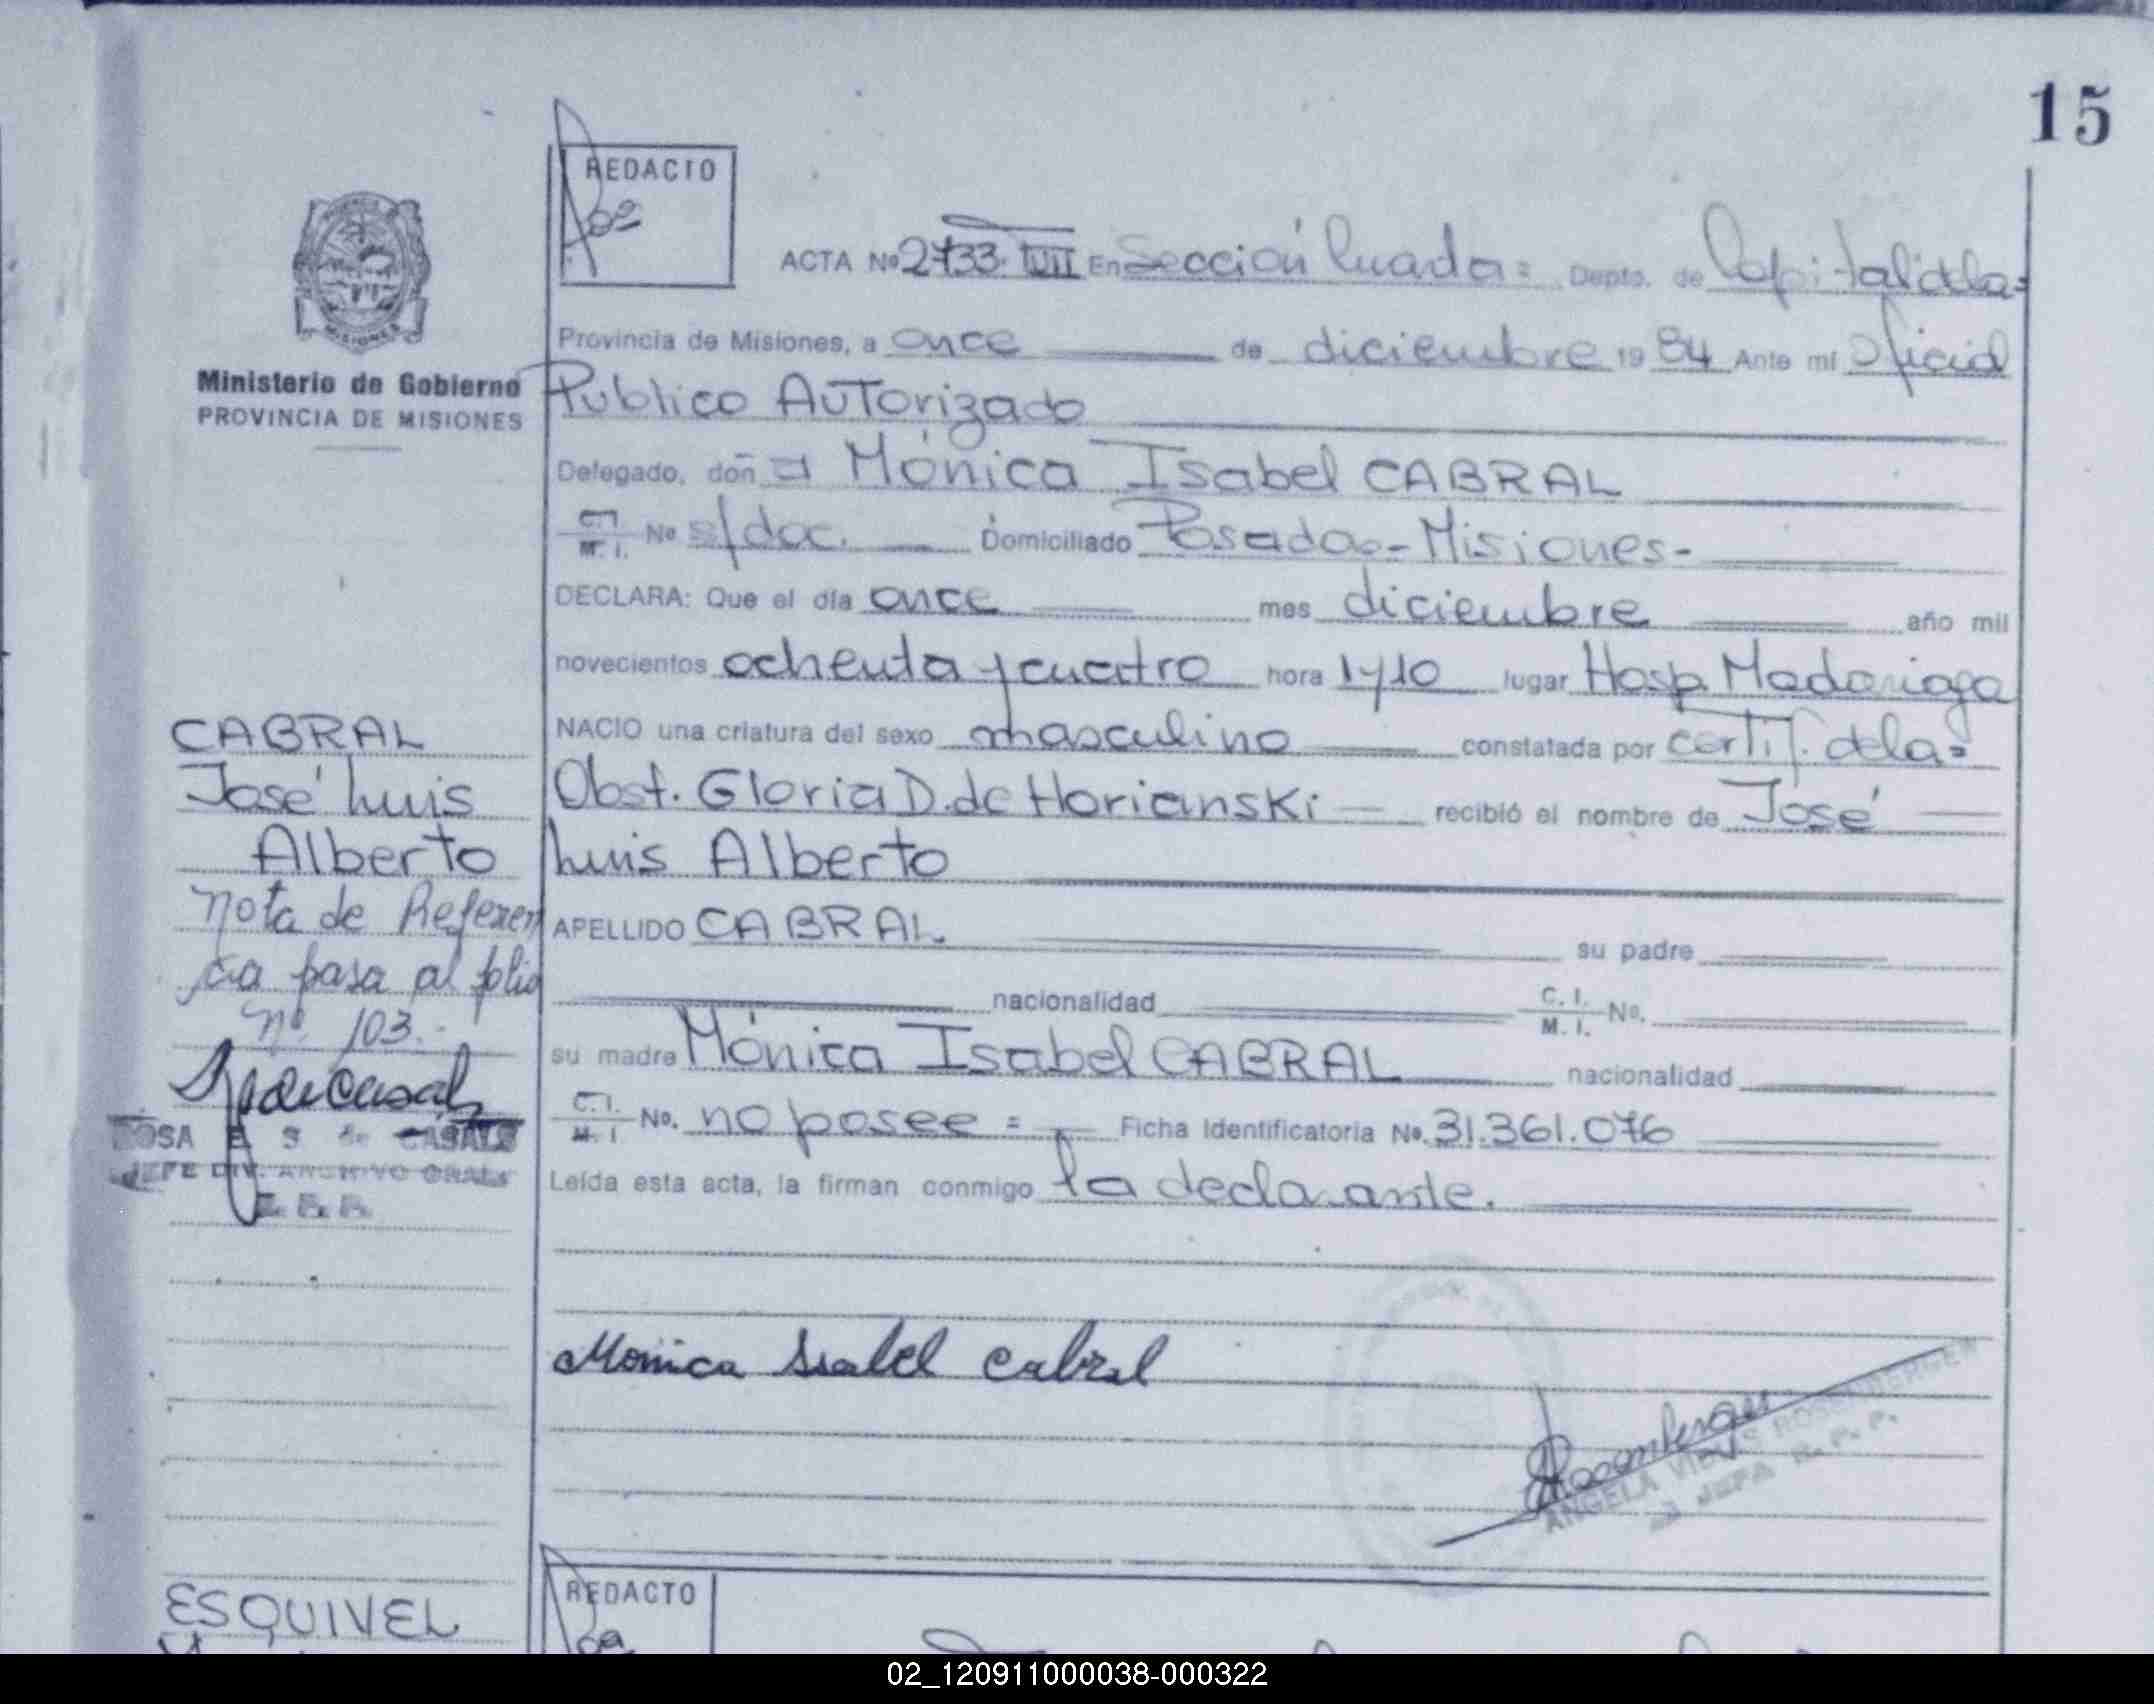 15
REDACTO
ACTA Nº 2733 VIII En Sección Cuarta = Depto. de Capital de la =
Provincia de Misiones, a once de diciembre 19 84 Ante mí Oficial
Ministerio de Gobierno
PROVINCIA DE MISIONES
Público Autorizado
Delegado, doñ a Mónica Isabel CABRAL
C. I. M. I. No s/doc. Domiciliado Posadas - Misiones -
DECLARA: Que el día once mes diciembre año mil
novecientos ochenta y cuatro hora 1y10 lugar Hosp. Madariaga
NACIO una criatura del sexo masculino constatada por certif. de la =
Obst. Gloria D. de Horianski recibió el nombre de José
Luis Alberto
CABRAL
José Luis
Alberto
Nota de Referen
cia pasa al folio
Nº 103.-
APELLIDO CABRAL su padre
nacionalidad C. I. M. I. No.
su madre Mónica Isabel CABRAL nacionalidad
C. I. M. I No. no posee = Ficha Identificatoria No. 31.361.076
Leída esta acta, la firman conmigo la declarante.
ROSA E S de CASALS
JEFE DIV. ARCHIVO GRAL
Monica Isabel Cabral
ANGELA ROSEMBERGER
JEFA R. P. P.
REDACTO
ESQUIVEL
02_120911000038-000322